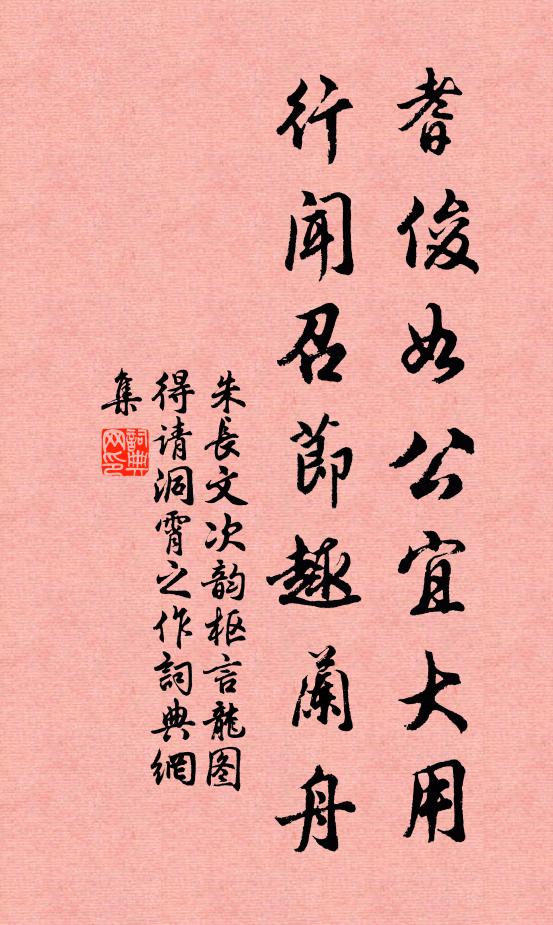 耆俊如公宜大用
行聞召節趣蘭舟
朱長文次韵枢言龍图
得请洞霄之作詞典網
集
詞典網印